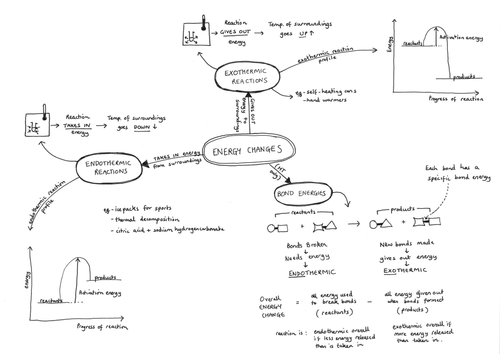 Reaction
GIVES OUT
energy
Temp. of surroundings
goes UP ↑
EXOTHERMIC
REACTIONS
exothermic reaction
profile
eg - self-heating cans
- hand warmers
Energy
reactants
Activation energy
products
Progress of reaction
GIVES OUT
energy to
surroundings
ENERGY CHANGES
Reaction
TAKES IN
energy
Temp. of surroundings
goes DOWN ↓
ENDOTHERMIC
REACTIONS
TAKES IN energy
from surroundings
endothermic reaction
profile
eg - icepacks for sports
- thermal decomposition
- citric acid + sodium hydrogencarbonate
Energy
products
Activation energy
reactants
Progress of reaction
(HT
only)
BOND ENERGIES
Each bond has a
specific bond energy
reactants
products
+
→
+
Bonds Broken
Needs energy
ENDOTHERMIC
New bonds made
gives out energy
EXOTHERMIC
Overall
ENERGY
CHANGE
=
all energy used
to break bonds
(reactants)
-
all energy given out
when bonds formed
(products)
reaction is:
endothermic overall
if less energy released
than is taken in
exothermic overall if
more energy released
than taken in.